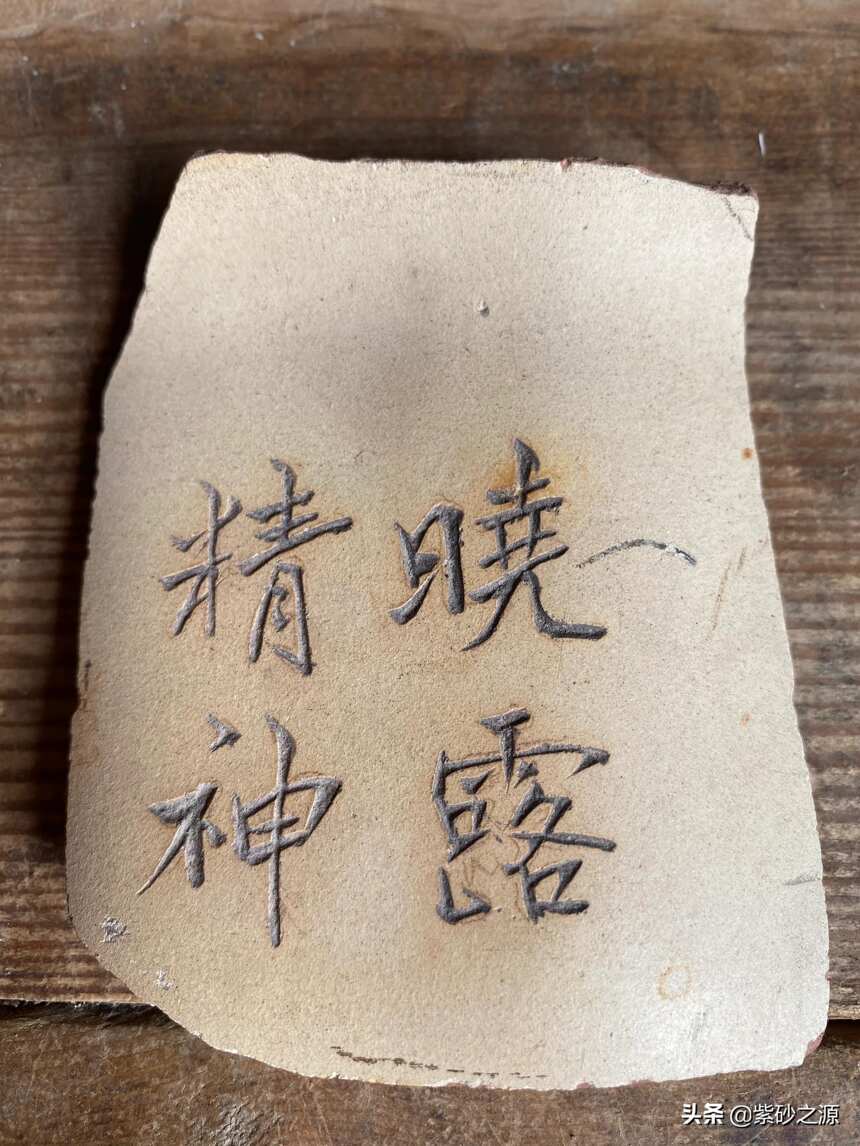 曉露
精神
头条 @紫砂之源